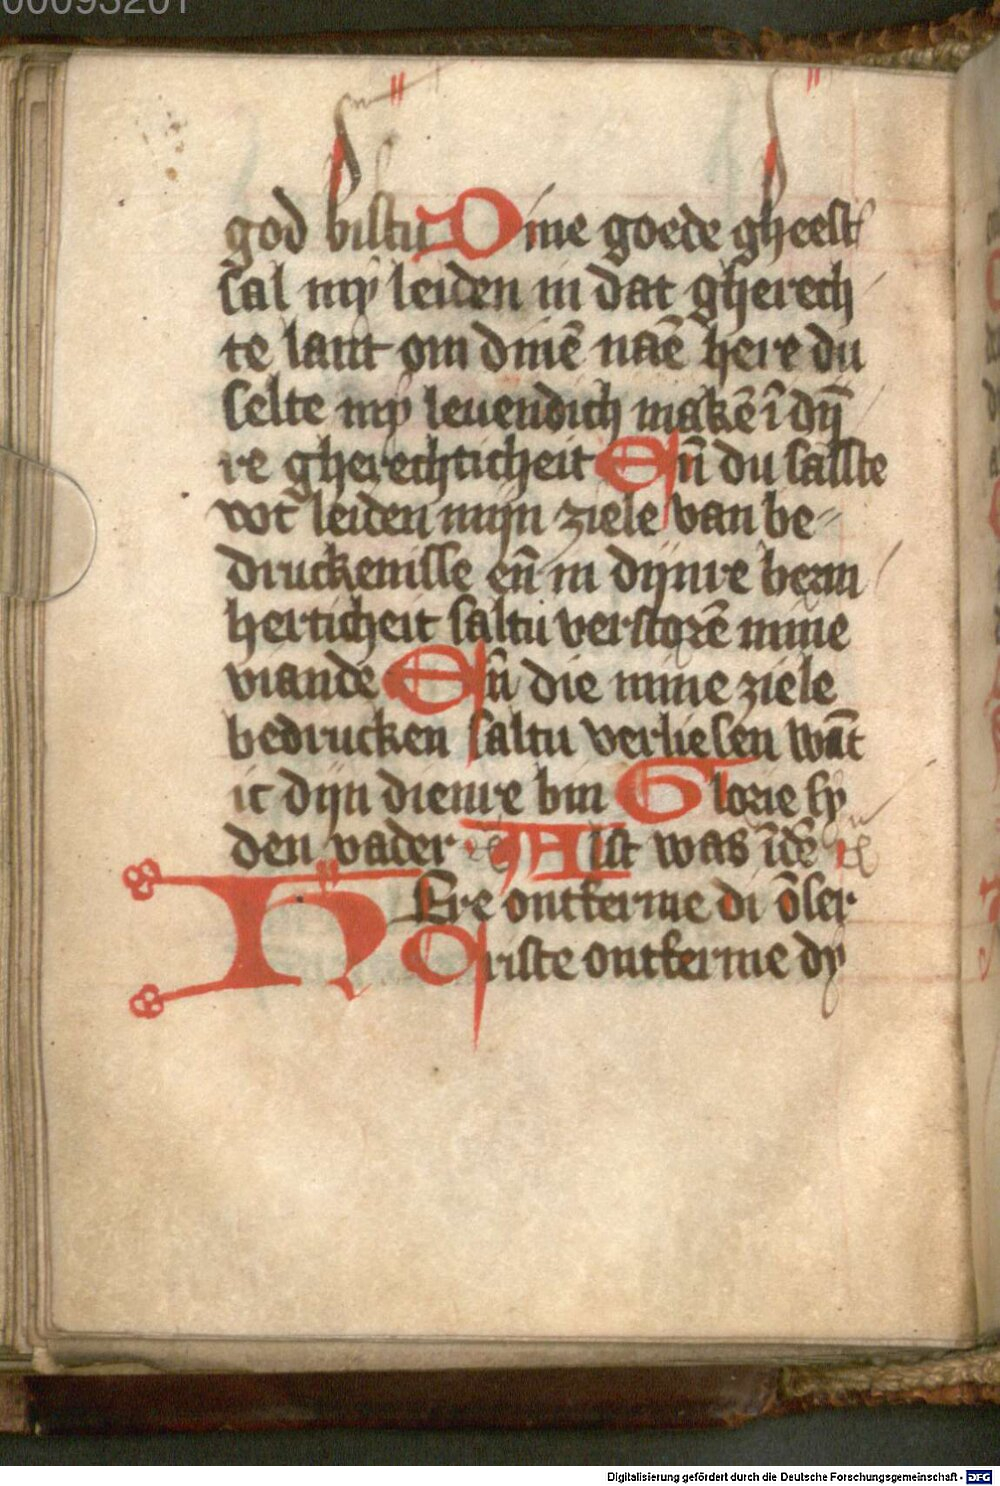 00093201
god bistu Dine goede gheest
sal my leiden in dat gherech
te lant om dinē naē here du
selte my leuendich makē ī dij̄
re gherechticheit Eñ du salste
wt leiden mijn ziele van be⸗
druckenisse eñ in dijnre berm
herticheit saltu verstorē mine
viande Eñ die mine ziele
bedrucken saltu verliesen wāt
ic dijn dienre bin Glorie sy
den vader Alst was īdē
HEre ontferme di ōser
Criste ontferme dy
Digitalisierung gefördert durch die Deutsche Forschungsgemeinschaft - DFG